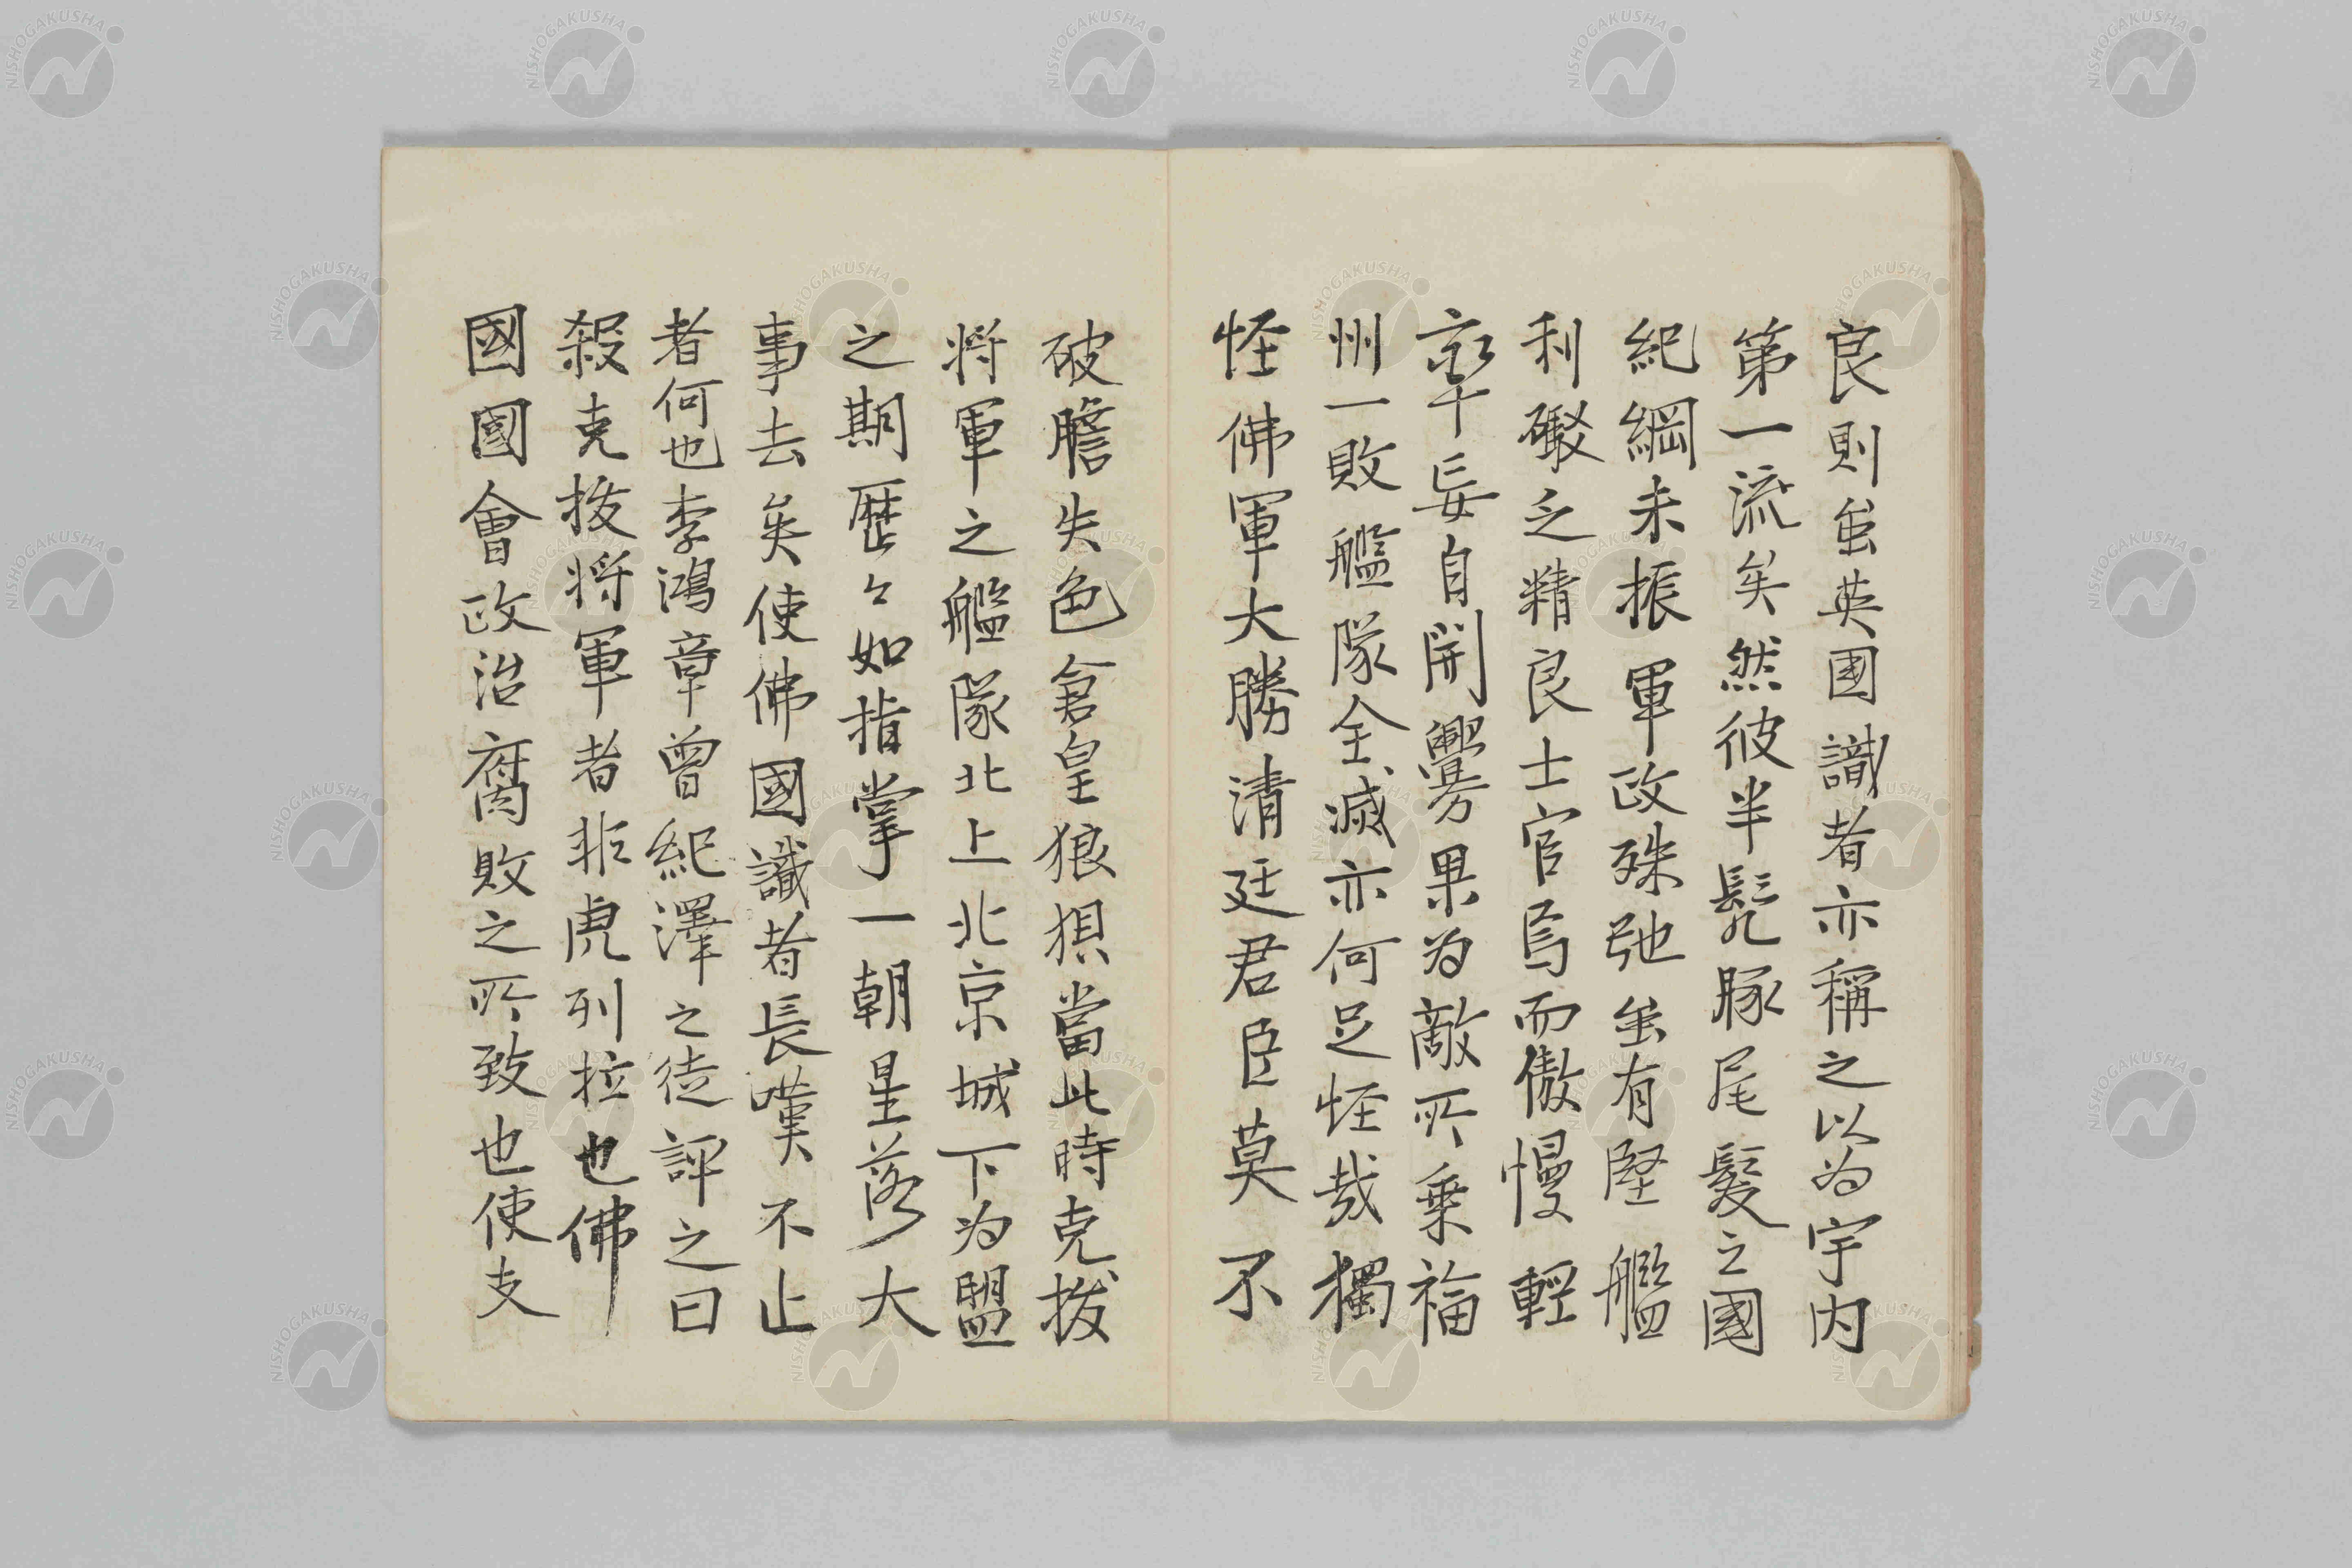 良則虽英國識者亦稱之以为宇内
第一流矣然彼半髡豚尾髮之國
紀綱未振軍政殊弛虽有堅艦
利礮乏精良士官焉而傲慢輕
率妄自開釁果为敵所乗福
州一敗艦隊全滅亦何足怪哉獨
怪佛軍大勝清廷君臣莫不
破膽失色倉皇狼狽當此時克拔
将軍之艦隊北上北京城下为盟
之期歷々如指掌一朝星落大
事去矣使佛國識者長嘆不止
者何也李鴻章曾紀澤之徒評之曰
殺克拔将軍者非虎列拉也佛
國國會政治腐敗之所致也使支
NISHOGAKUSHA